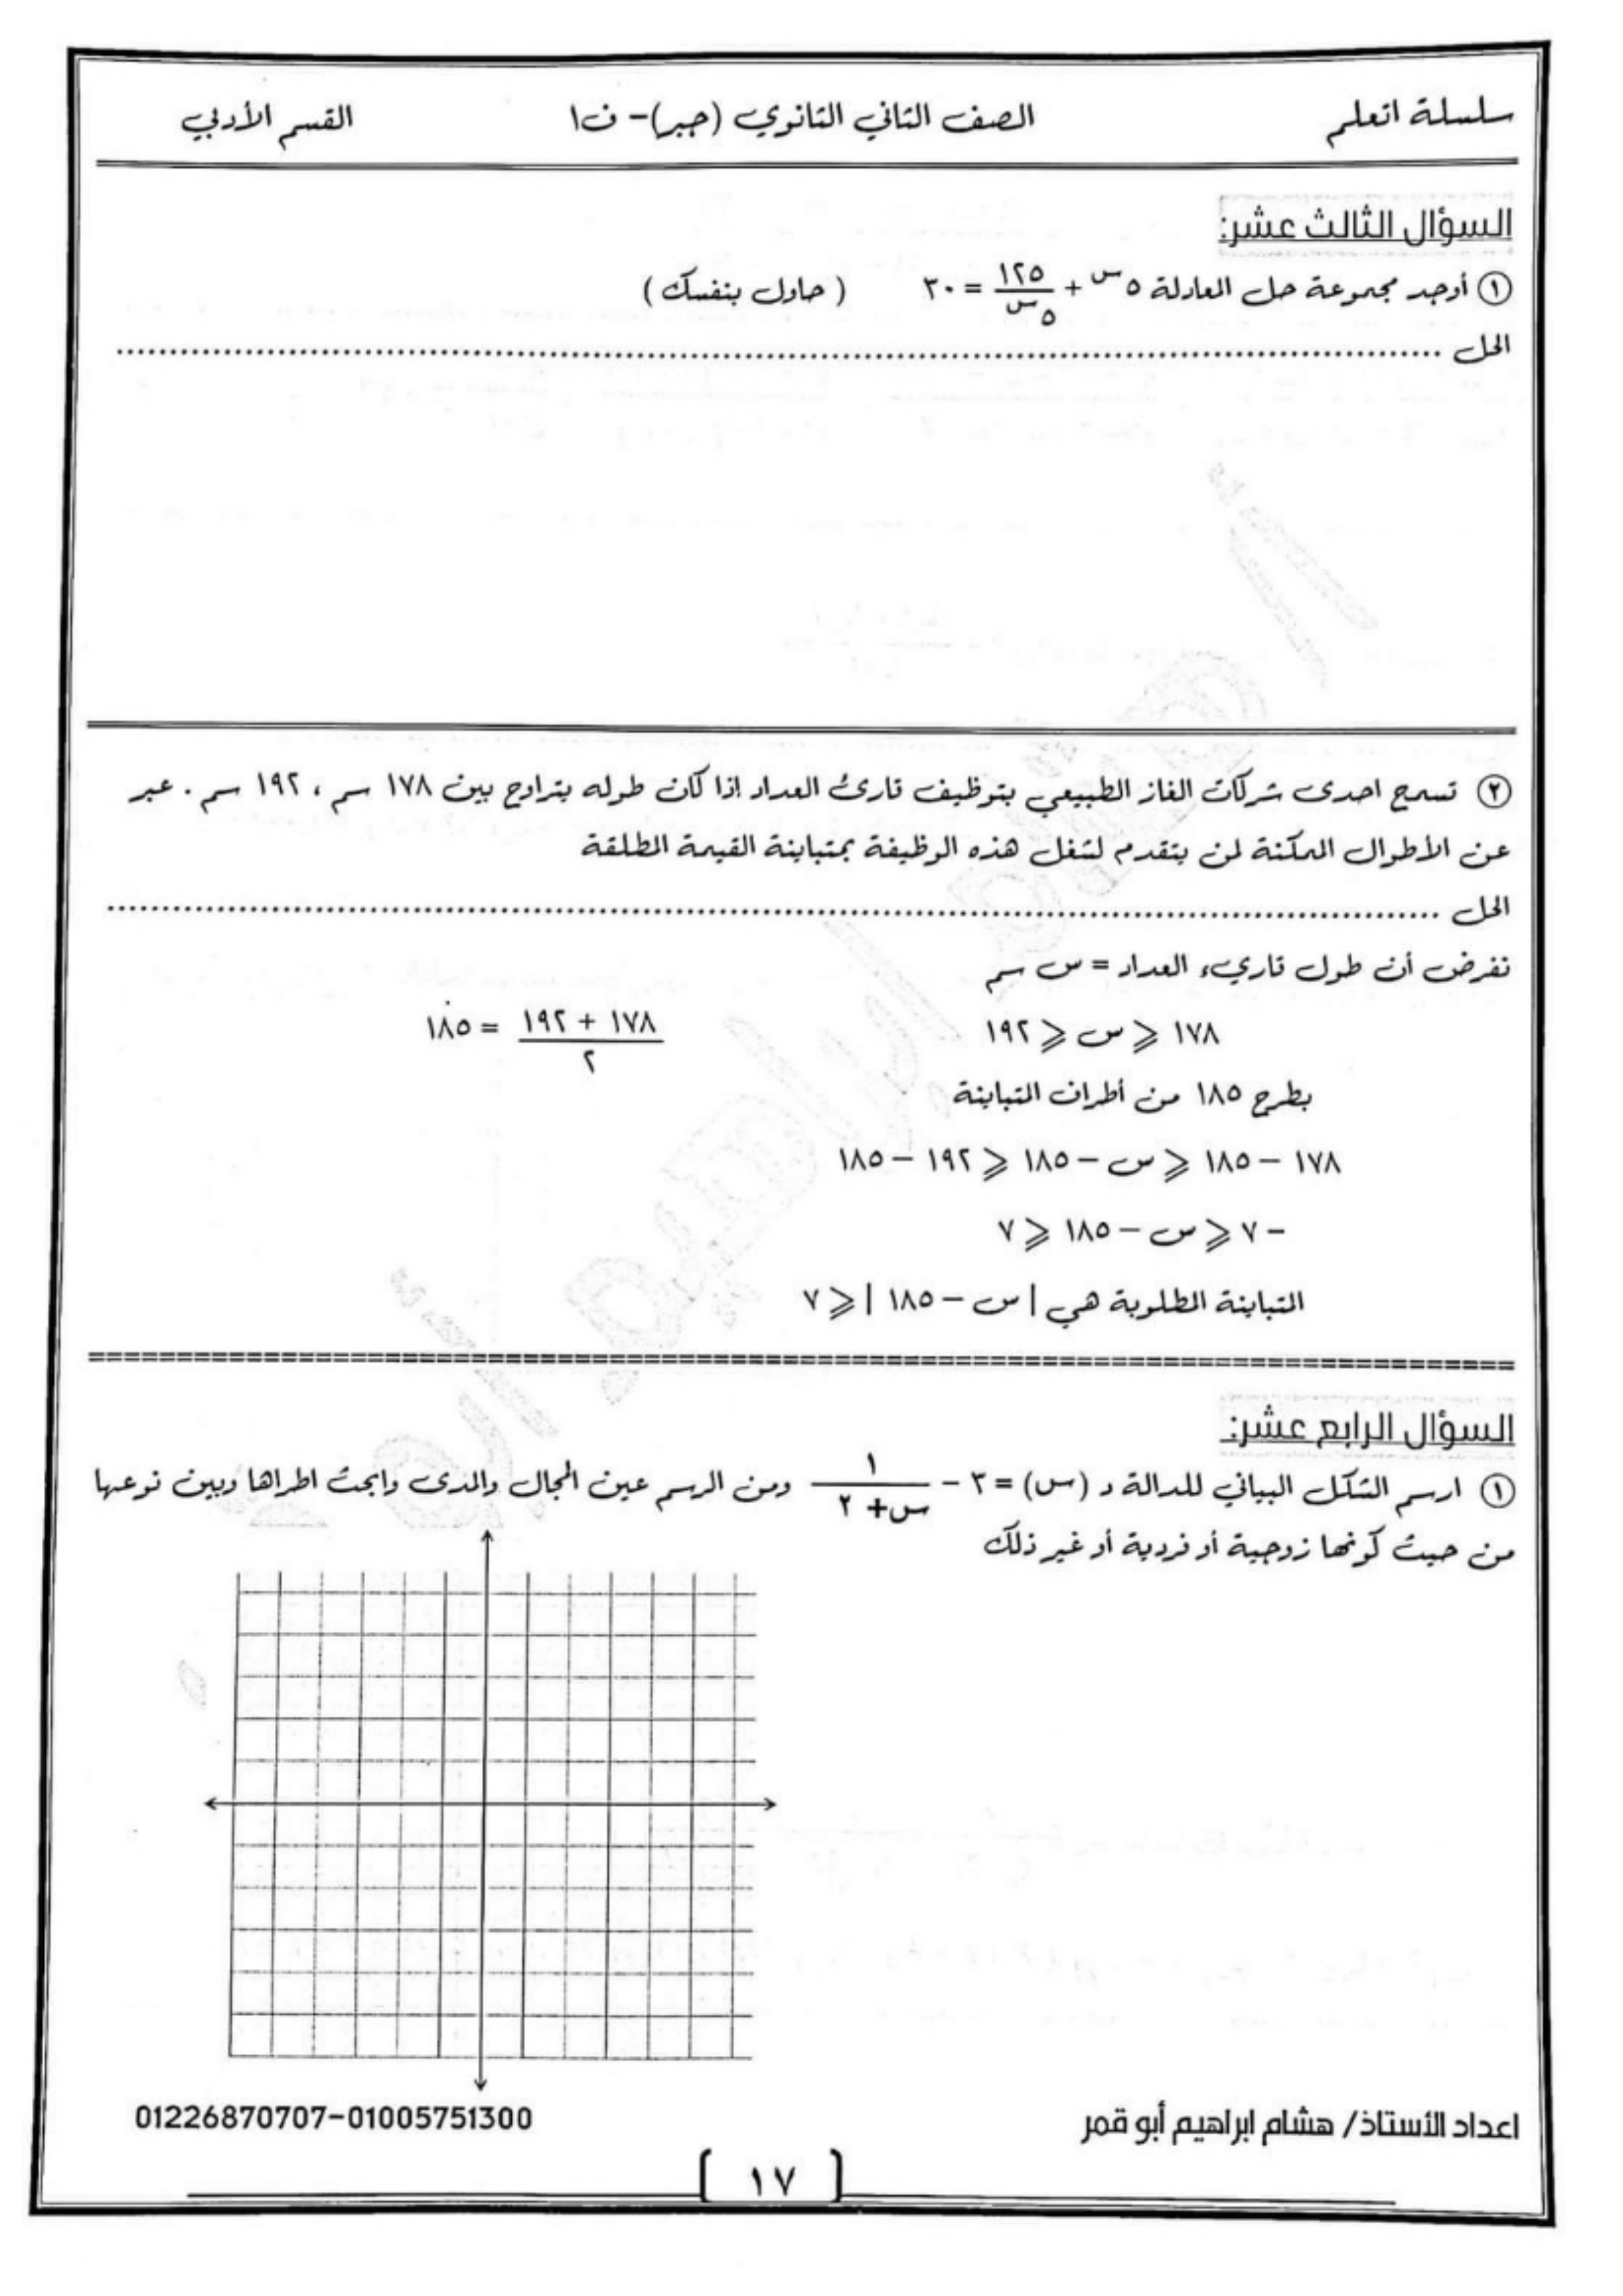 سلسلة اتعلم    الصف الثاني الثانوي (جبر)- ف١    القسم الأدبي
السؤال الثالث عشر:
① أوجد مجموعة حل المعادلة ٥^س + ١٢٥/٥^س = ٣٠    ( حاول بنفسك )
الحل ..........
② تسمح احدى شركات الغاز الطبيعي بتوظيف قارئ العداد إذا كان طوله يتراوح بين ١٧٨ سم ، ١٩٢ سم . عبر
عن الأطوال الممكنة لمن يتقدم لشغل هذه الوظيفة بمتباينة القيمة المطلقة
الحل ..........
نفرض أن طول قاريء العداد = س سم
١٧٨ ⩽ س ⩽ ١٩٢    (١٧٨ + ١٩٢)/٢ = ١٨٥
بطرح ١٨٥ من أطراف المتباينة
١٧٨ – ١٨٥ ⩽ س – ١٨٥ ⩽ ١٩٢ – ١٨٥
– ٧ ⩽ س – ١٨٥ ⩽ ٧
المتباينة المطلوبة هي | س – ١٨٥ | ⩽ ٧
السؤال الرابع عشر:
① ارسم الشكل البياني للدالة د (س) = ٣ – ١/(س+ ٢) ومن الرسم عين المجال والمدى وابحث اطرادها وبين نوعها
من حيث كونها زوجية أو فردية أو غير ذلك
اعداد الأستاذ/ هشام ابراهيم أبو قمر    01226870707-01005751300
[ ١٧ ]